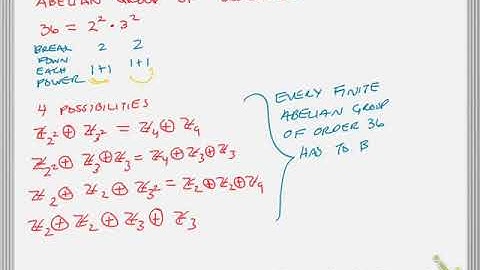 ABELIAN GROUP OF
36 = 2² · 3²
BREAK 2 2
DOWN
EACH 1+1 1+1
POWER
4 POSSIBILITIES
ℤ₂² ⊕ ℤ₃² = ℤ₄ ⊕ ℤ₉
ℤ₂² ⊕ ℤ₃ ⊕ ℤ₃ = ℤ₄ ⊕ ℤ₃ ⊕ ℤ₃
ℤ₂ ⊕ ℤ₂ ⊕ ℤ₃² = ℤ₂ ⊕ ℤ₂ ⊕ ℤ₉
ℤ₂ ⊕ ℤ₂ ⊕ ℤ₃ ⊕ ℤ₃
EVERY FINITE
ABELIAN GROUP
OF ORDER 36
HAS TO B